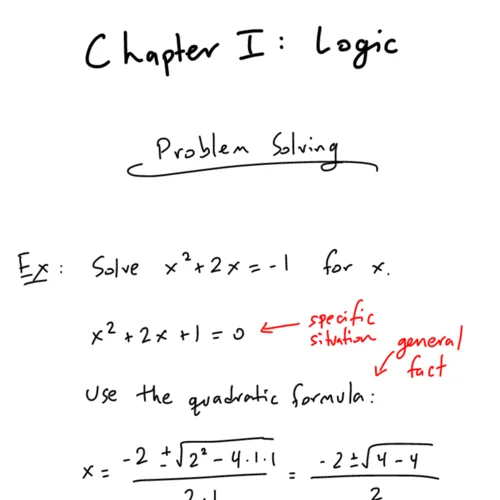 Chapter I: Logic
Problem Solving
Ex: Solve x² + 2x = -1 for x.
x² + 2x + 1 = 0 ← specific situation
general fact
Use the quadratic formula:
x = (-2 ± √(2² - 4·1·1))/(2·1) = (-2 ± √(4 - 4))/2